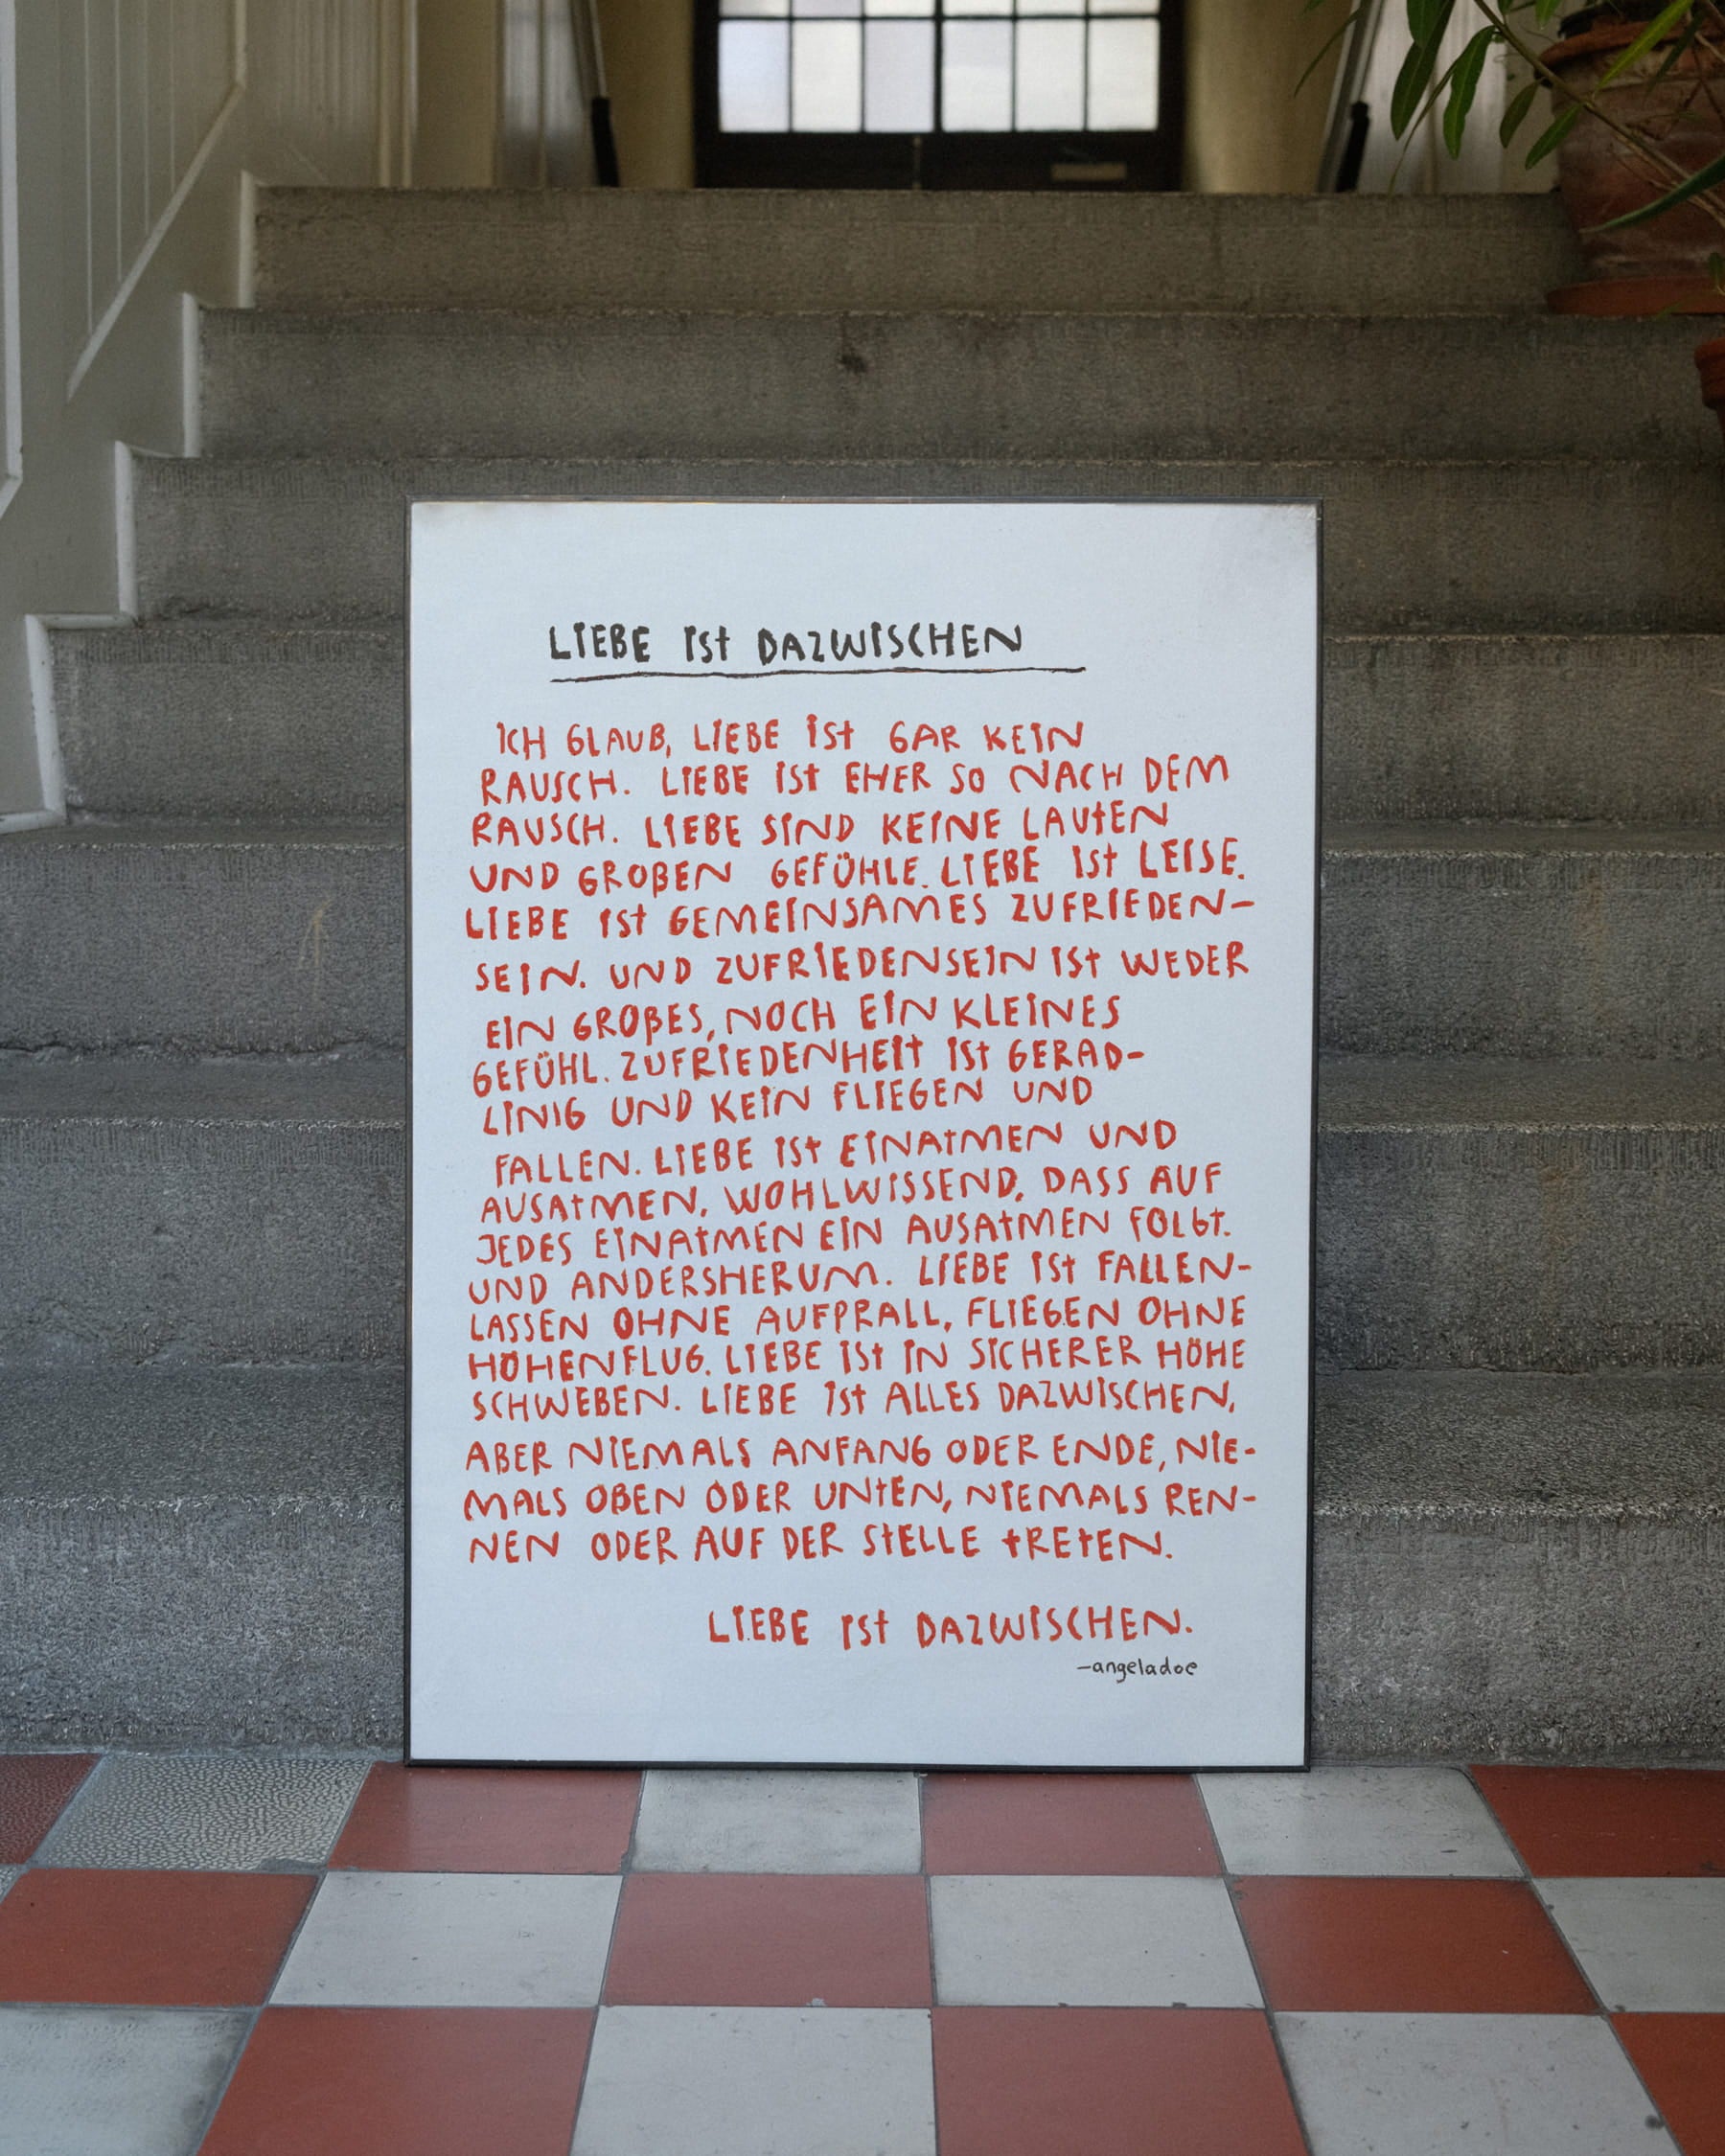 LIEBE ISt DAZWISCHEN
ICH GLAUB, LIEBE ISt GAR KEIN
RAUSCH. LIEBE ISt EHER SO NACH DEM
RAUSCH. LIEBE SIND KEINE LAUtEN
UND GROßEN GEFÜHLE. LIEBE ISt LEISE.
LIEBE ISt GEMEINSAMES ZUFRIEDEN-
SEIN. UND ZUFRIEDENSEIN ISt WEDER
EIN GROßES, NOCH EIN KLEINES
GEFÜHL. ZUFRIEDENHEIt ISt GERAD-
LINIG UND KEIN FLIEGEN UND
FALLEN. LIEBE ISt EINAtMEN UND
AUSAtMEN, WOHLWISSEND, DASS AUF
JEDES EINAtMEN EIN AUSAtMEN FOLGt.
UND ANDERSHERUM. LIEBE ISt FALLEN-
LASSEN OHNE AUFPRALL, FLIEGEN OHNE
HÖHENFLUG. LIEBE ISt IN SICHERER HÖHE
SCHWEBEN. LIEBE ISt ALLES DAZWISCHEN,
ABER NIEMALS ANFANG ODER ENDE, NIE-
MALS OBEN ODER UNtEN, NIEMALS REN-
NEN ODER AUF DER StELLE tREtEN.
LIEBE ISt DAZWISCHEN.
-angeladoe